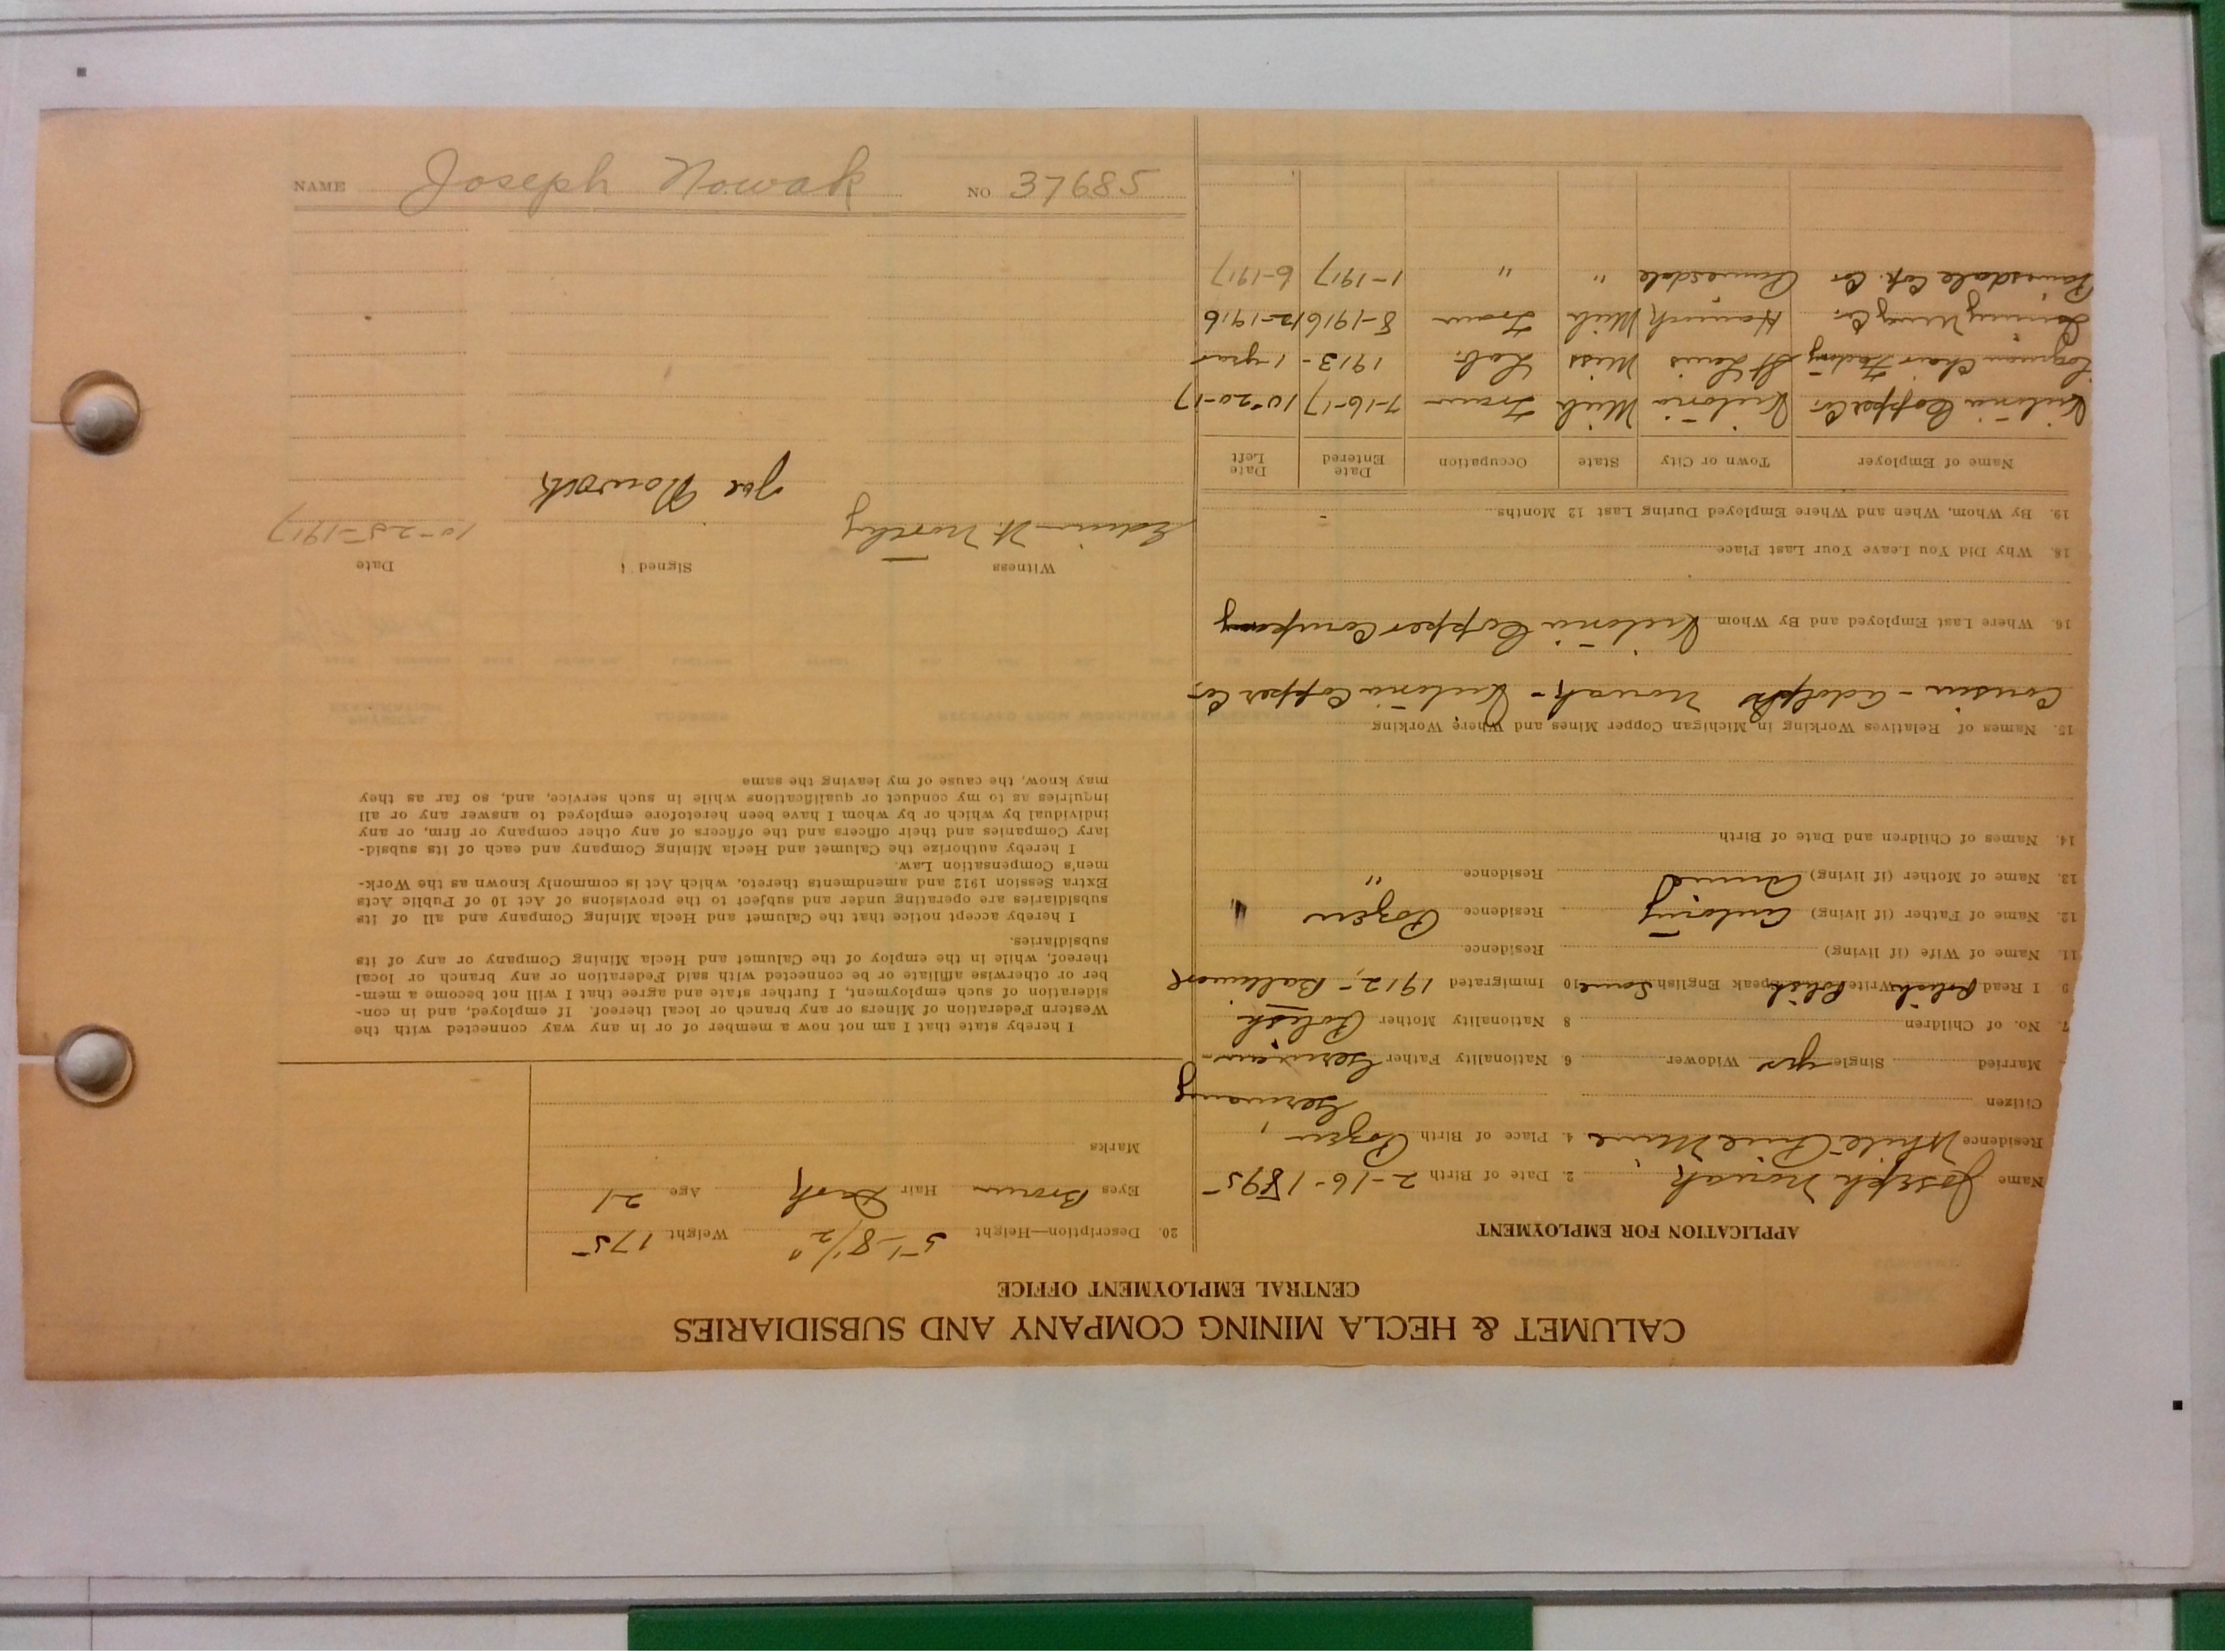 CALUMET & HECLA MINING COMPANY AND SUBSIDIARIES
CENTRAL EMPLOYMENT OFFICE
APPLICATION FOR EMPLOYMENT
Name Joseph Nowak 2. Date of Birth 2-16-1895
Residence White Pine Mine 4. Place of Birth Pozen,
Citizen Germany
Married Single yes Widower 6 Nationality Father German
7. No. of Children 8 Nationality Mother Polish
9 I Read Polish Write Polish Speak English Some 10 Immigrated 1912 - Baltimore
11. Name of Wife (if living) Residence
12. Name of Father (if living) Residence Pozen "
13. Name of Mother (if living) Residence "
14. Names of Children and Date of Birth
15. Names of Relatives Working in Michigan Copper Mines and Where Working
Cousin - Adolph Nowak - Victoria Copper Co.
16. Where Last Employed and By Whom Victoria Copper Company
18. Why Did You Leave Your Last Place
19. By Whom, When and Where Employed During Last 12 Months
Name of Employer Town or City State Occupation Date Entered Date Left
Victoria Copper Co. Victoria Mich Tram 7-16-17 10-20-17
Chair Factory St Louis Miss Lab. 1913- 1 year
Mining Co. Hancock Mich Tram 8-1916 12-1916
Painesdale Cop. Co. Painesdale " " 1-1917 6-1917
20. Description—Height 5'-8 1/2" Weight 175
Eyes Brown Hair Dark Age 21
Marks
I hereby state that I am not now a member of or in any way connected with the
Western Federation of Miners or any branch or local thereof. If employed, and in con-
sideration of such employment, I further state and agree that I will not become a mem-
ber or otherwise affiliate or be connected with said Federation or any branch or local
thereof, while in the employ of the Calumet and Hecla Mining Company or any of its
subsidiaries.
I hereby accept notice that the Calumet and Hecla Mining Company and all of its
subsidiaries are operating under and subject to the provisions of Act 10 of Public Acts
Extra Session 1912 and amendments thereto, which Act is commonly known as the Work-
men's Compensation Law.
I hereby authorize the Calumet and Hecla Mining Company and each of its subsid-
iary Companies and their officers and the officers of any other company or firm, or any
individual by which or by whom I have been heretofore employed to answer any or all
inquiries as to my conduct or qualifications while in such service, and, so far as they
may know, the cause of my leaving the same
Witness Signed Date
Edwin H. Northey Joe Nowak 10-25-1917
NAME Joseph Nowak NO 37685